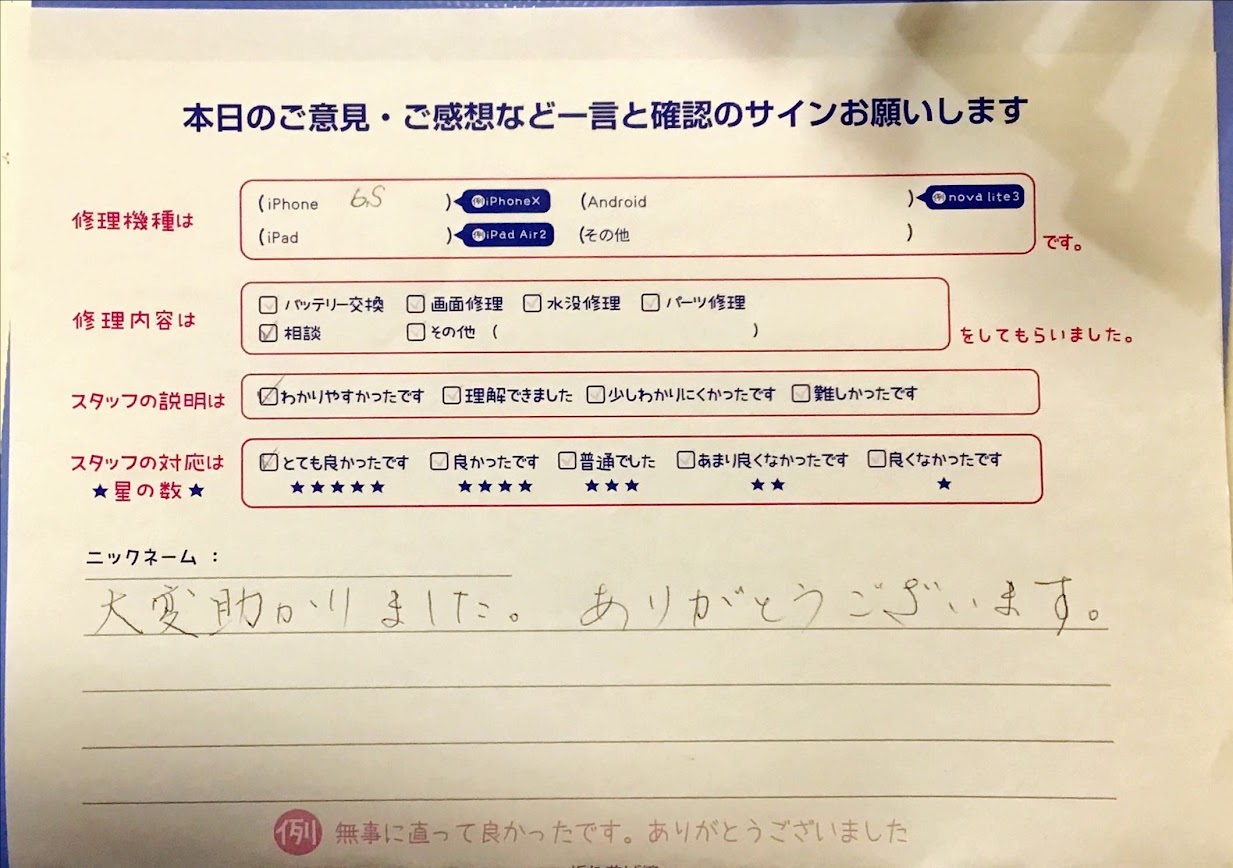 本日のご意見・ご感想など一言と確認のサインお願いします
修理機種は (iPhone 6S ) 例iPhoneX (Android ) 例nova lite3
(iPad ) 例iPad Air2 (その他 ) です。
修理内容は □バッテリー交換 □画面修理 □水没修理 □パーツ修理
☑相談 □その他 ( ) をしてもらいました。
スタッフの説明は ☑わかりやすかったです □理解できました □少しわかりにくかったです □難しかったです
スタッフの対応は ☑とても良かったです □良かったです □普通でした □あまり良くなかったです □良くなかったです
★星の数★ ★★★★★ ★★★★ ★★★ ★★ ★
ニックネーム :
大変助かりました。 ありがとうございます。
例 無事に直って良かったです。ありがとうございました